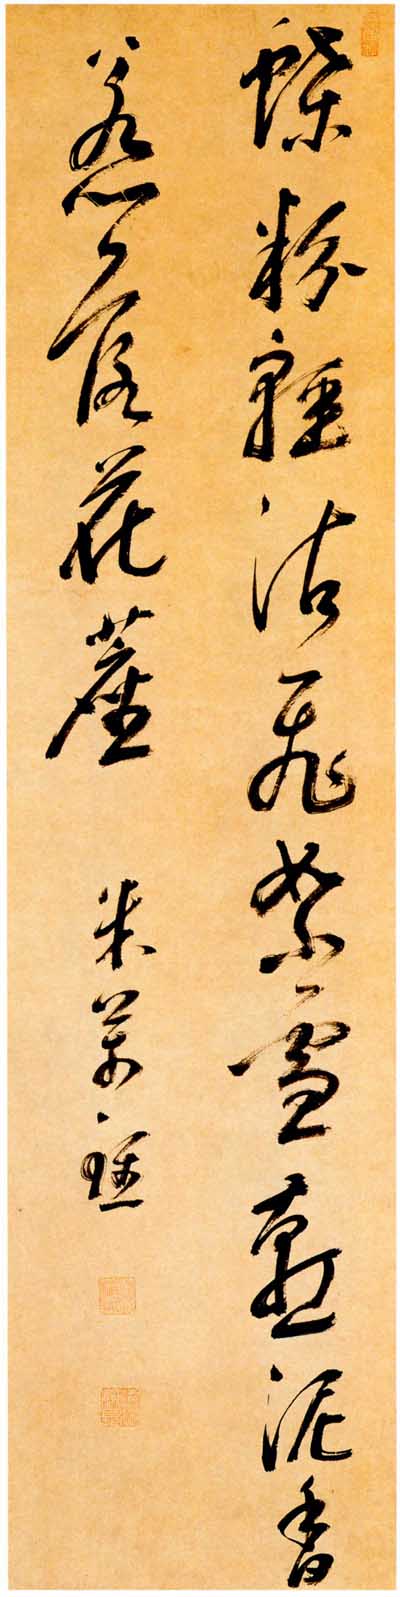 蝶粉輕沾飛絮雪燕泥香
惹落花塵 米萬鍾